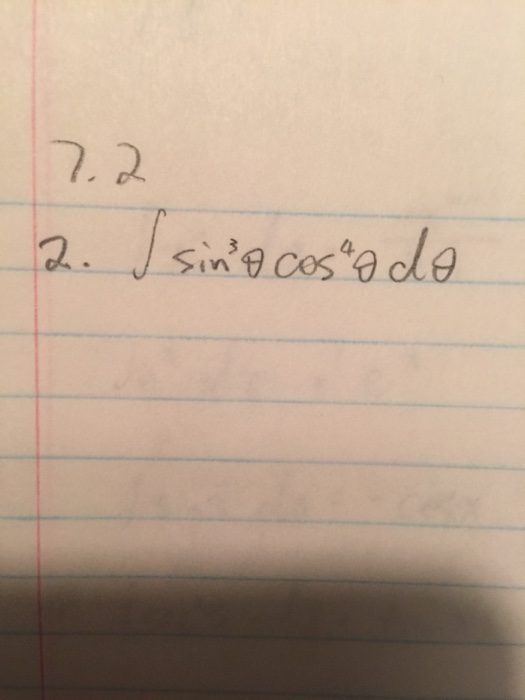 7.2
2. ∫ sin³θ cos⁴θ dθ